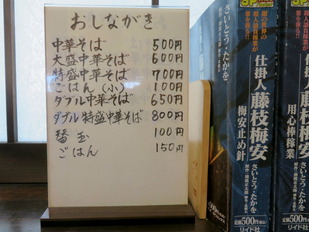 おしながき
中華そば 500円
大盛中華そば 600円
特盛中華そば 700円
ごはん(小) 100円
ダブル中華そば 650円
ダブル特盛中華そば 800円
替玉 100円
ごはん 150円
さいとう・たかを
さいとう・たかを
仕掛人 藤枝梅安
梅安止め針
さいとう・たかを
定価500円
リイド社
仕掛人 藤枝梅安
用心棒稼業
さいとう・たかを
定価500円
リイド社